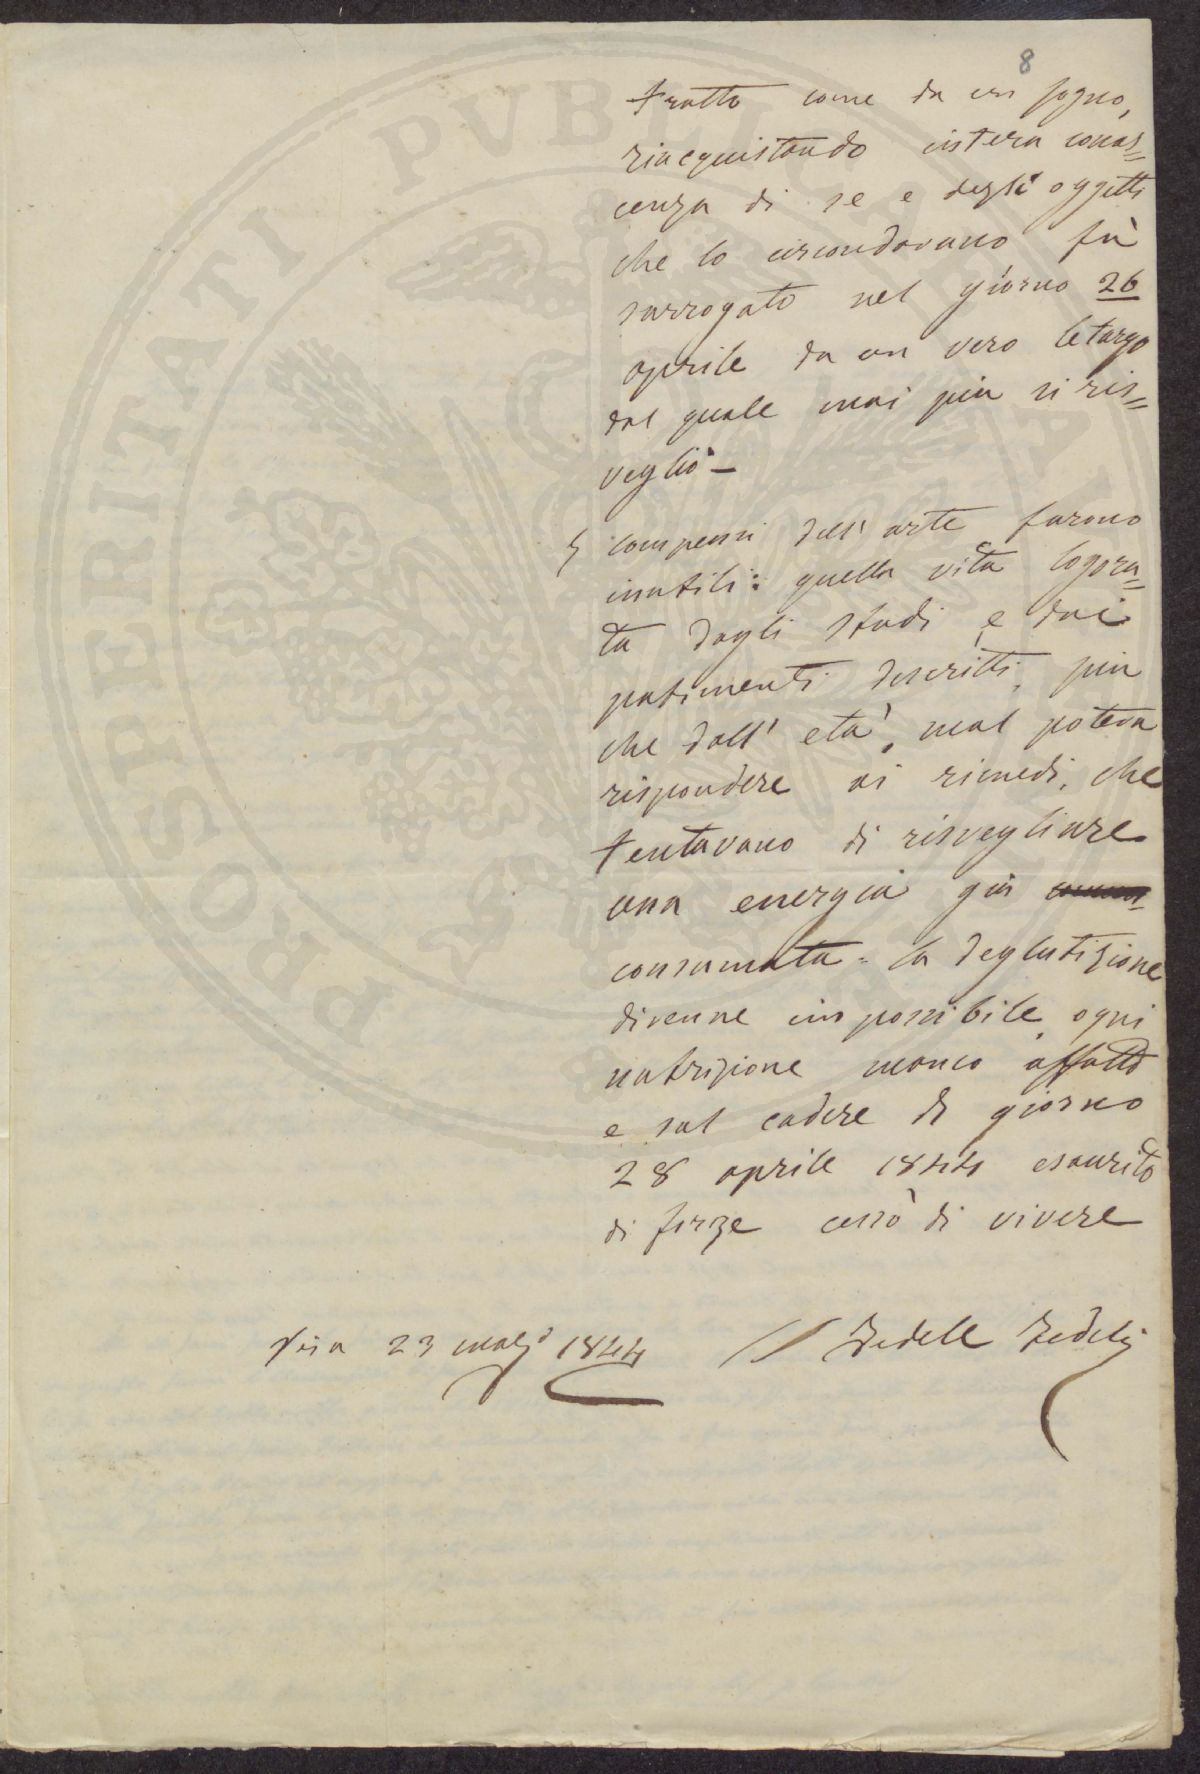 8
tratto come da un sogno,
riacquistando intera conos=
cenza di se e degli oggetti
che lo circondavano fù
surrogato nel giorno 26
aprile da un vero letargo
dal quale mai più si ris=
vegliò -
I compensi dell' arte furono
inutili: quella vita logora=
ta dagli studi e dai
patimenti descritti, più
che dall' età, mal poteva
rispondere ai rimedi, che
tentavano di risvegliare
una energia già
consumata - la deglutizione
divenne impossibile, ogni
nutrizione mancò affatto
e sul cadere di giorno
28 aprile 1844 esaurito
di forze cessò di vivere
Pisa 23 magº 1844 Fedele Fedeli
PROSPERITATI PUBLICAE